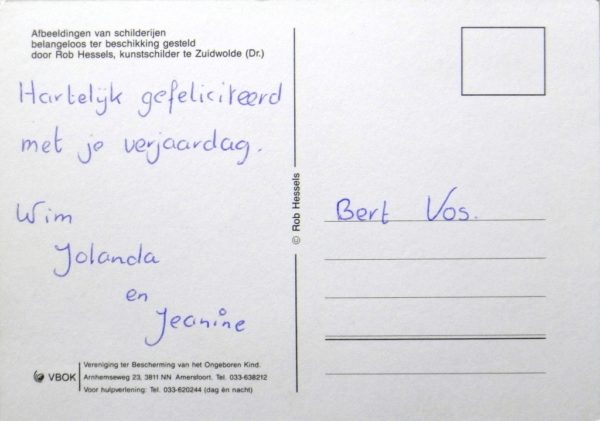 Afbeeldingen van schilderijen
belangeloos ter beschikking gesteld
door Rob Hessels, kunstschilder te Zuidwolde (Dr.)
Hartelijk gefeliciteerd
met je verjaardag.
Wim
Yolanda
en
Jeanine
VBOK
Vereniging ter Bescherming van het Ongeboren Kind.
Arnhemseweg 23, 3811 NN Amersfoort. Tel. 033-638212
Voor hulpverlening: Tel. 033-620244 (dag én nacht)
© Rob Hessels
Bert Vos.